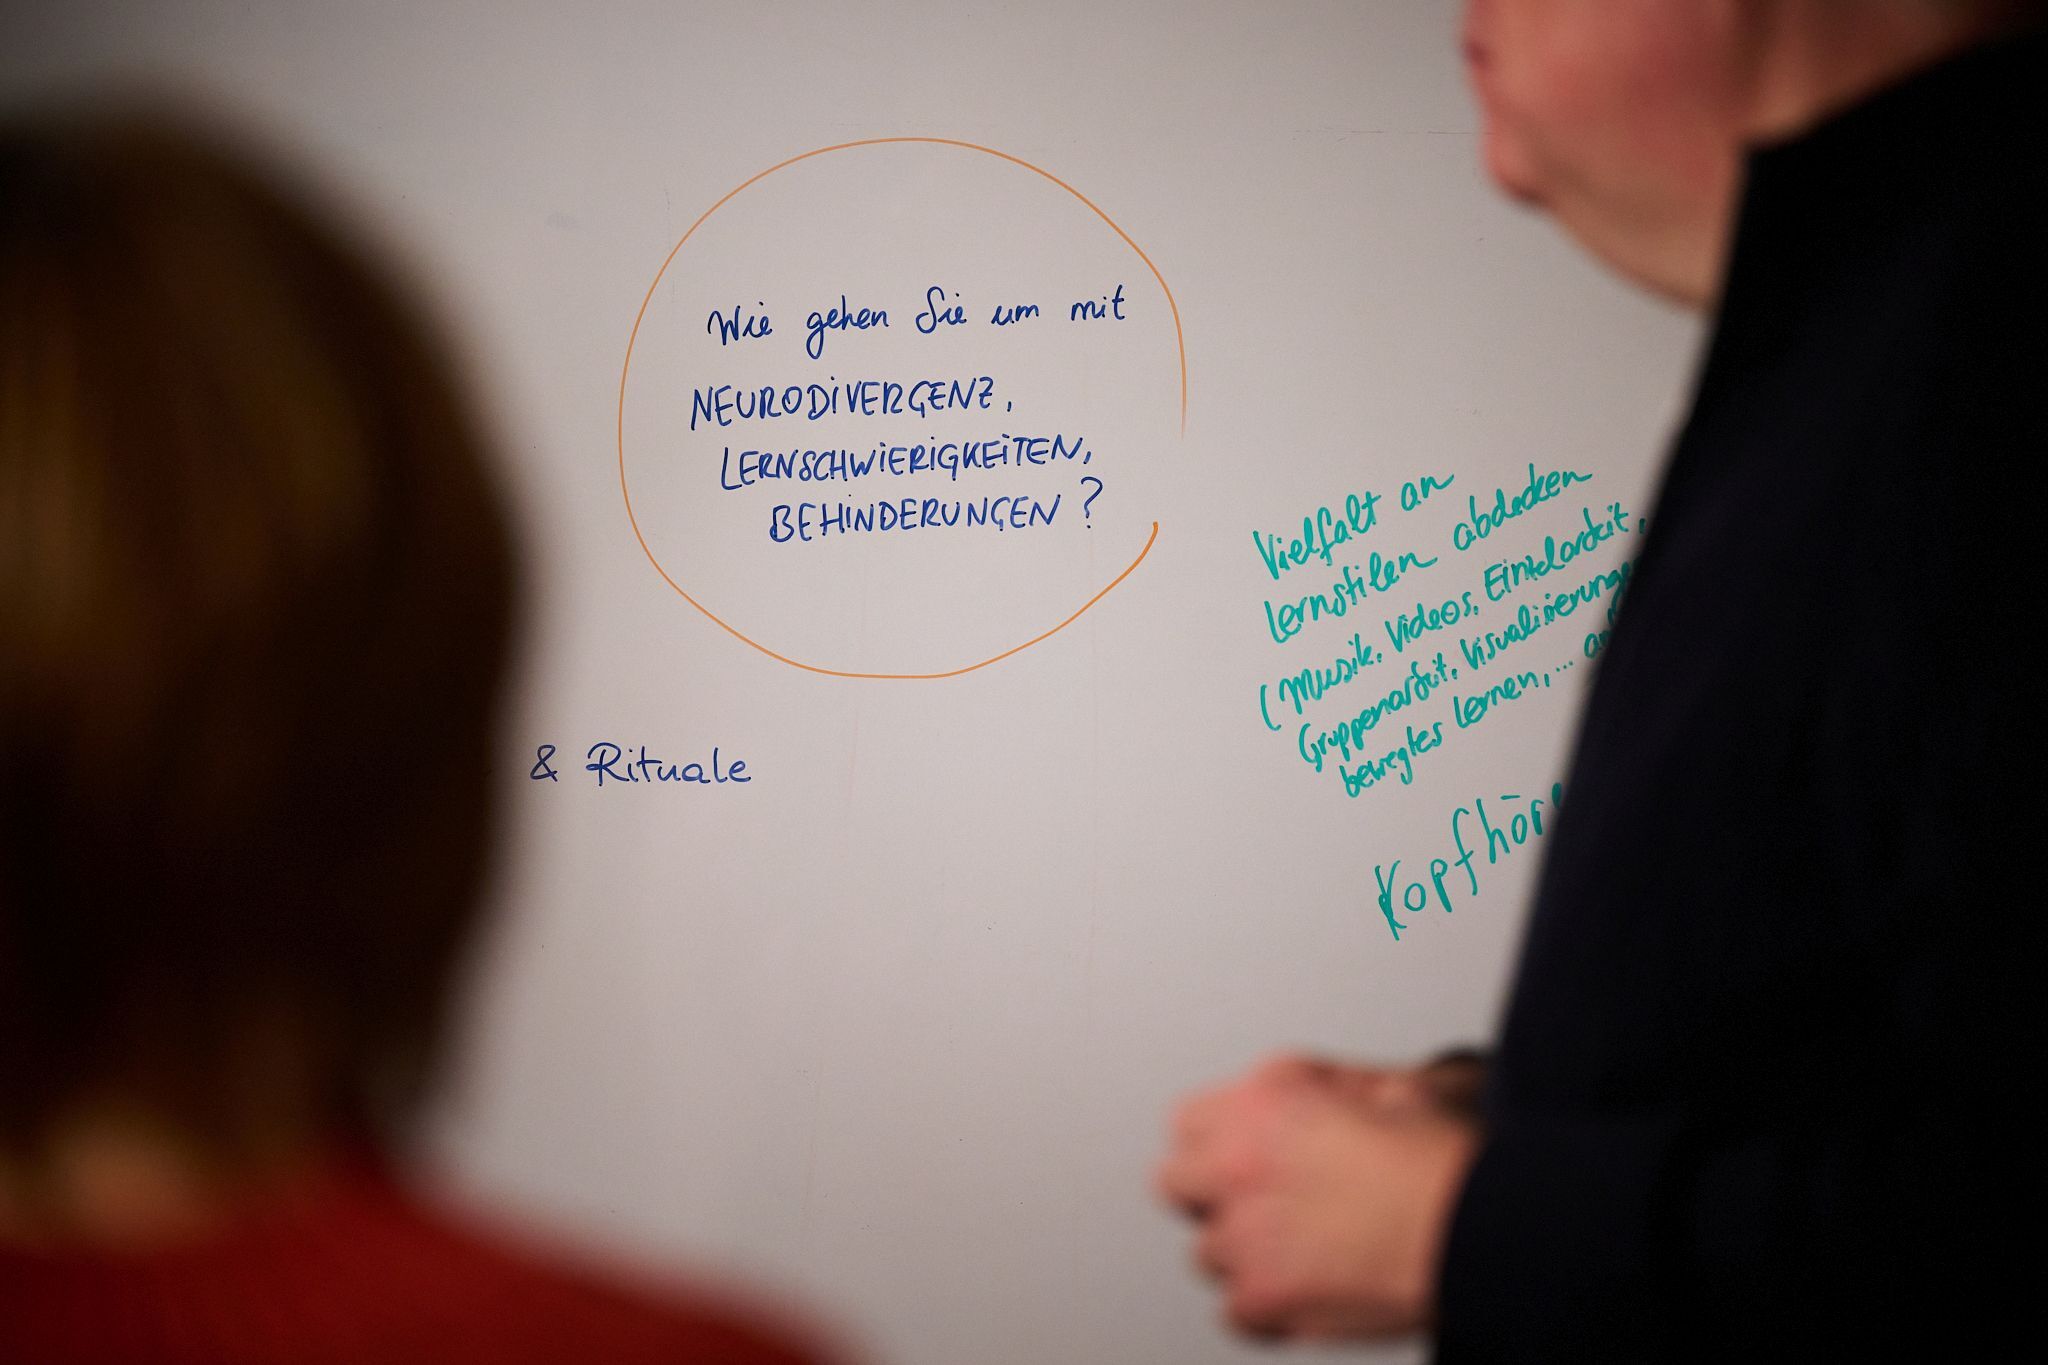 Wie gehen Sie um mit
NEURODIVERGENZ,
LERNSCHWIERIGKEITEN,
BEHINDERUNGEN?
& Rituale
Vielfalt an
Lernstilen abdecken
(Musik, Videos, Einzelarbeit,
Gruppenarbeit, Visualisierunge
bewegtes Lernen,...
Kopfhör